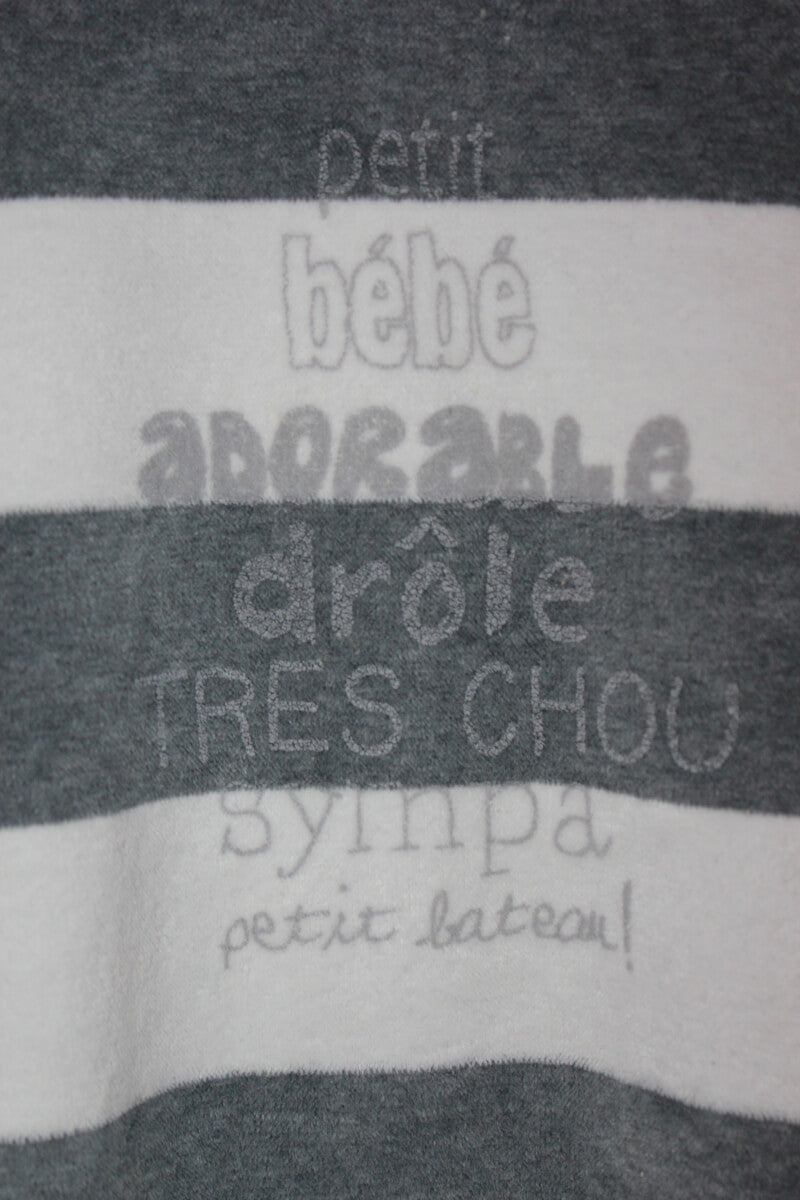 petit
bébé
ADORABLE
drôle
TRES CHOU
sympa
petit bateau!